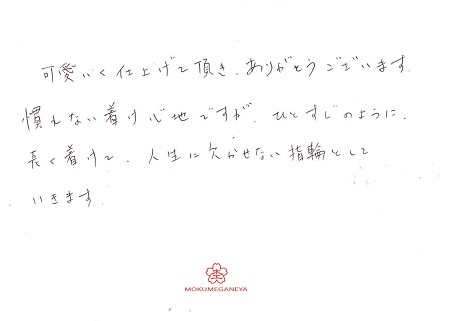 可愛いく仕上げて頂き、ありがとうございます。
慣れない着け心地ですが、ひとすじのように、
長く着けて、人生に欠かせない指輪として
いきます。
MOKUMEGANEYA